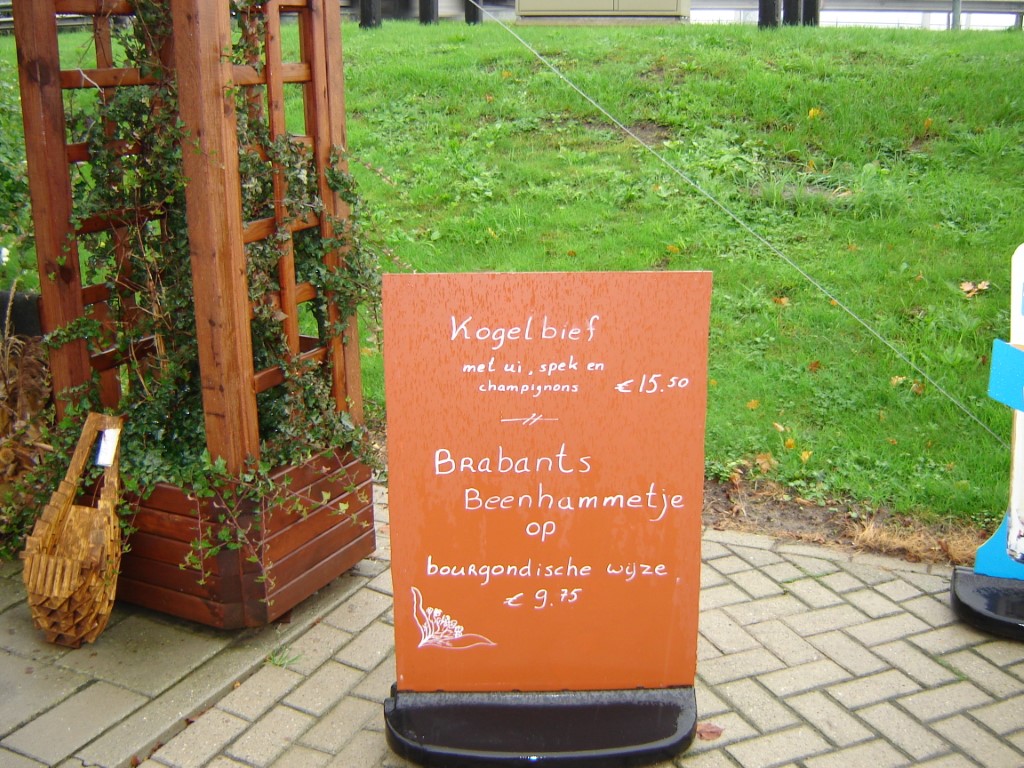 Kogelbief
met ui, spek en
champignons € 15.50
Brabants
Beenhammetje
op
bourgondische wijze
€ 9.75